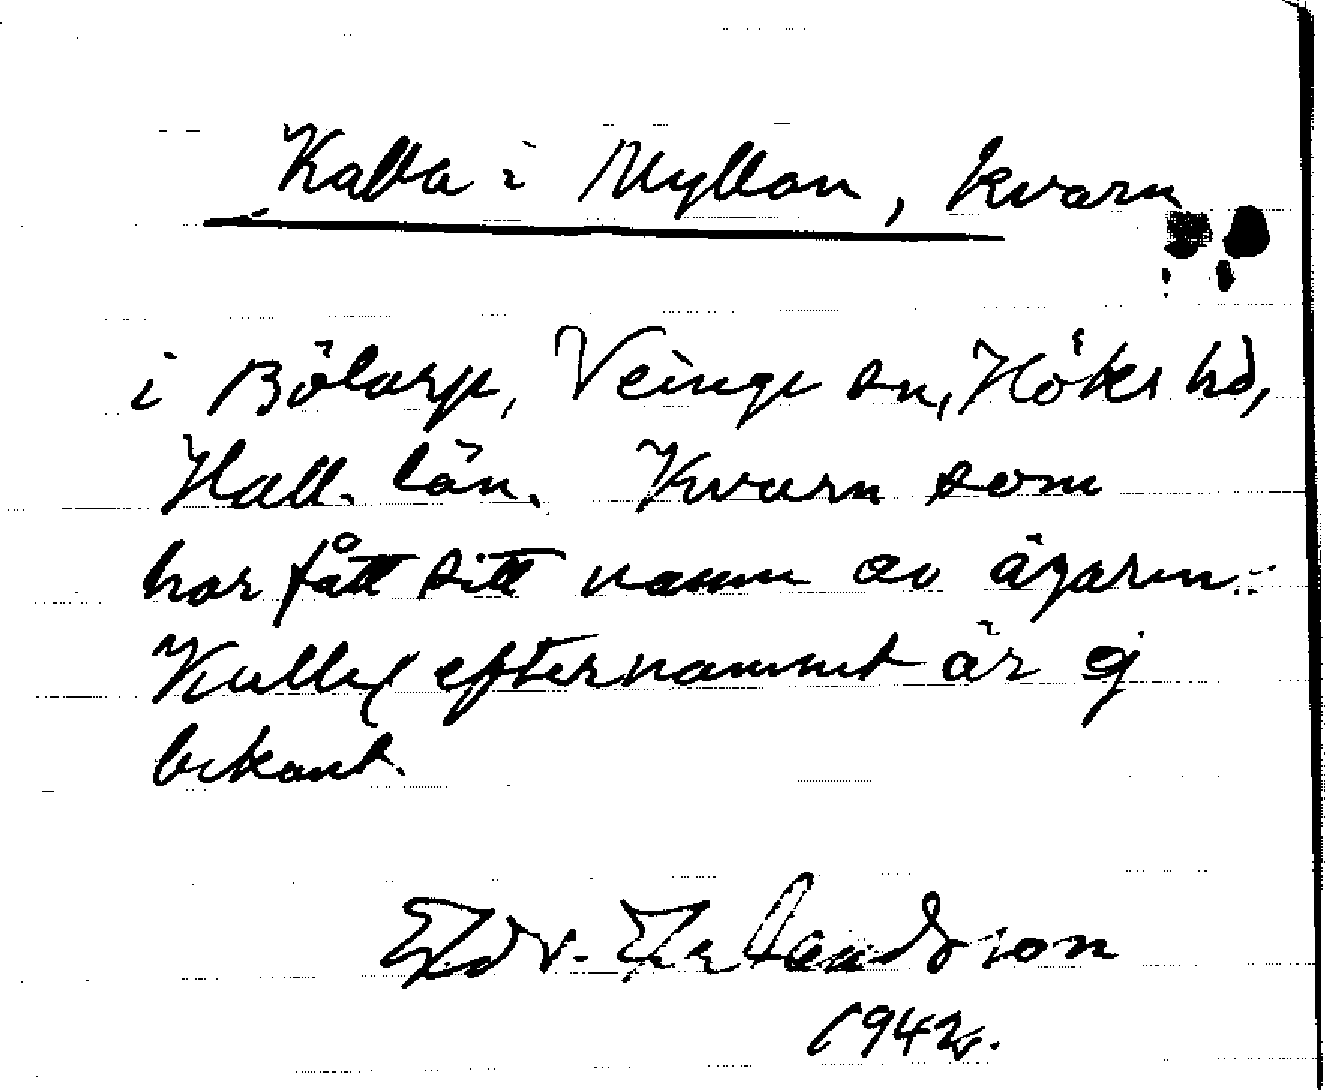 Kalla i Myllan, kvarn
i Bölarp, Veinge sn, Höks hd,
Hall. län. Kvarn som
har fått sitt namn av ägaren.
Kalle, efternamnet är ej
bekant.
Edv. Erlandsson
1942.